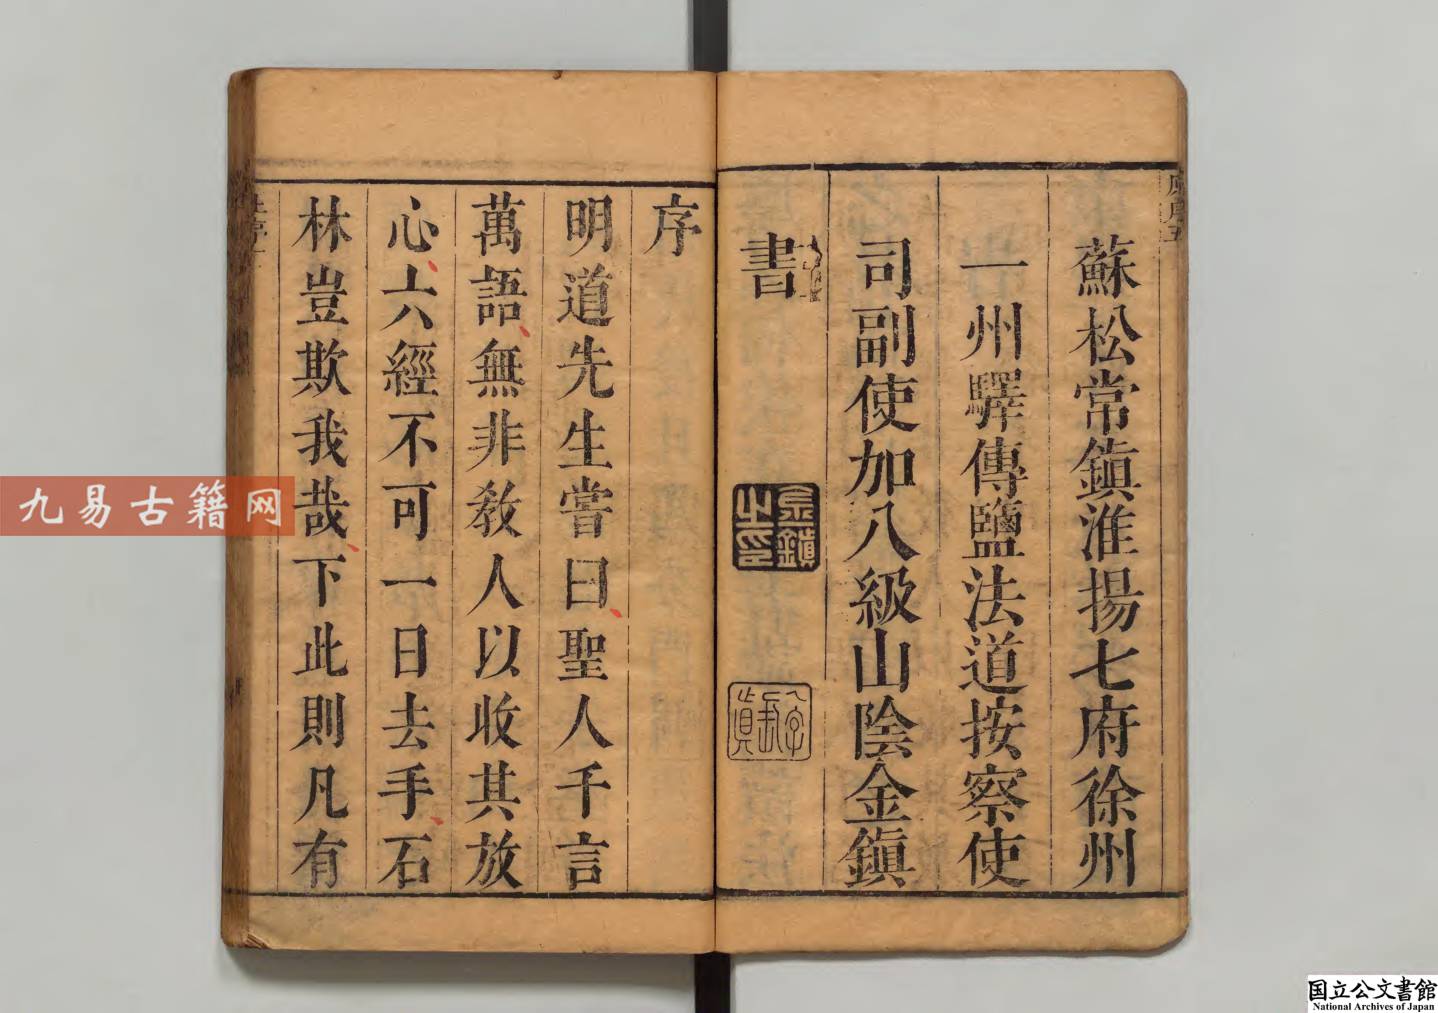 蘇松常鎮淮揚七府徐州
一州驛傳鹽法道按察使
司副使加八級山陰金鎮
書
金鎮之印
序
明道先生嘗曰聖人千言
萬語無非教人以收其放
心六經不可一日去手石
林豈欺我哉下此則凡有
九易古籍网
国立公文書館
National Archives of Japan